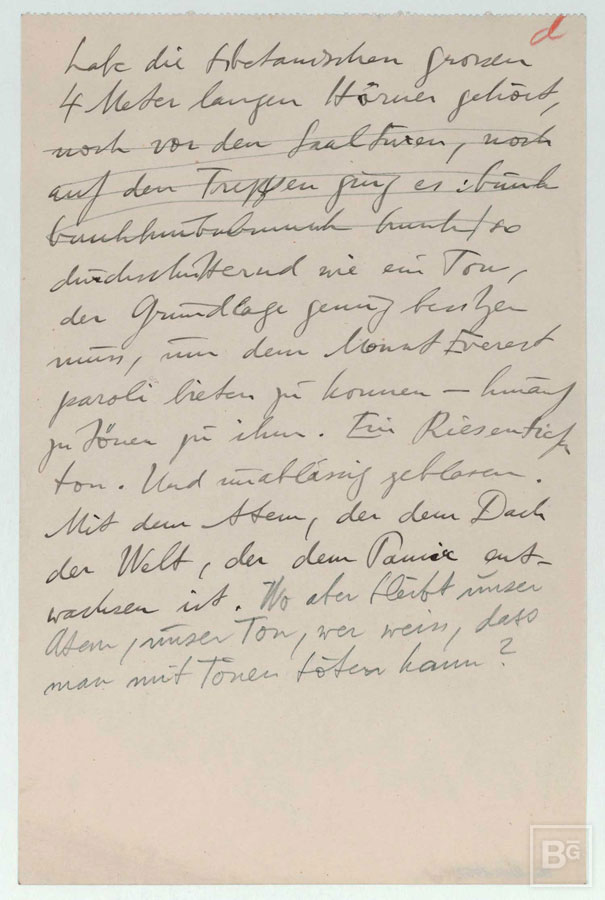 d
habe die tibetanischen grossen
4 Meter langen Hörner gehört,
noch vor den Saaltüren, noch
auf den Treppen ging es :
so
durchschütternd wie ein Ton,
der Grundlage genug besitzen
muss, um dem Mount Everest
paroli bieten zu können – hinauf
zu tönen zu ihm. Ein Riesentief
ton. Und unablässig geblasen.
Mit dem Atem, der dem Dach
der Welt, der dem Pamir ent-
wachsen ist. Wo aber bleibt unser
Atem, unser Ton, wer weiss, dass
man mit Tönen töten kann?
BG